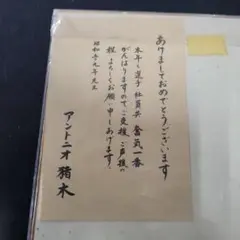 あけましておめでとうございます
本年も選手社員共 奮気一番
がんばりますのでご支援、ご声援の
程、よろしくお願い申しあげます。
昭和五十九年元旦
アントニオ猪木